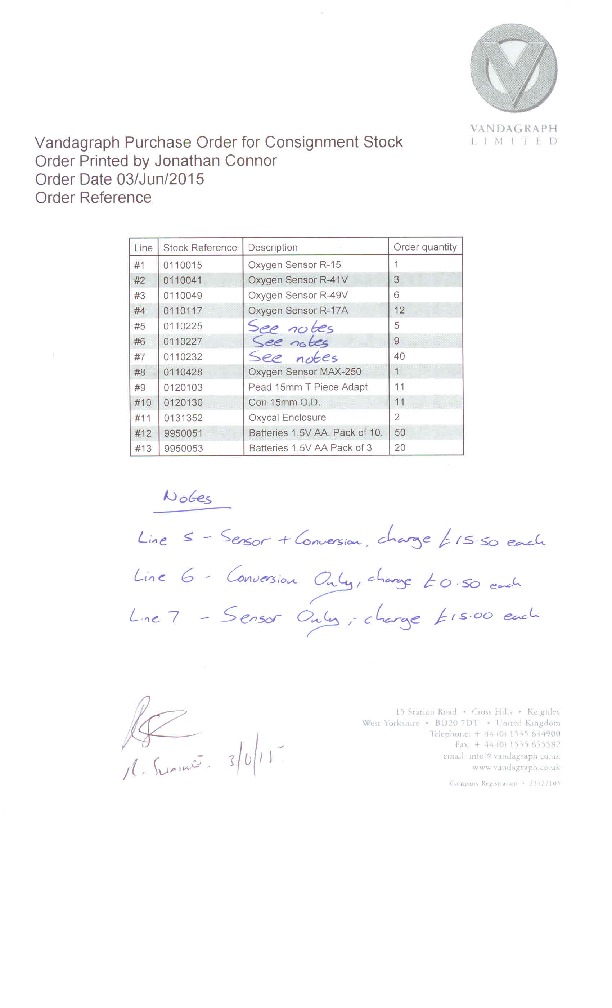 VANDAGRAPH
LIMITED
Vandagraph Purchase Order for Consignment Stock
Order Printed by Jonathan Connor
Order Date 03/Jun/2015
Order Reference
Line Stock Reference Description Order quantity
#1 0110015 Oxygen Sensor R-15 1
#2 0110041 Oxygen Sensor R-41V 3
#3 0110049 Oxygen Sensor R-49V 6
#4 0110117 Oxygen Sensor R-17A 12
#5 0110225 See notes 5
#6 0110227 See notes 9
#7 0110232 See notes 40
#8 0110428 Oxygen Sensor MAX-250 1
#9 0120103 Pead 15mm T Piece Adapt 11
#10 0120130 Con 15mm O.D. 11
#11 0131352 Oxycal Enclosure 2
#12 9950051 Batteries 1.5V AA. Pack of 10. 50
#13 9950053 Batteries 1.5V AA Pack of 3 20
Notes
Line 5 - Sensor + Conversion, charge £15.50 each
Line 6 - Conversion Only, charge £0.50 each
Line 7 - Sensor Only, charge £15.00 each
3/6/15
15 Station Road • Cross Hills • Keighley
West Yorkshire • BD20 7DT • United Kingdom
Telephone: + 44 (0) 1535 634900
Fax + 44 (0) 1535 635582
email info@vandagraph.co.uk
www.vandagraph.co.uk
Company Registration •